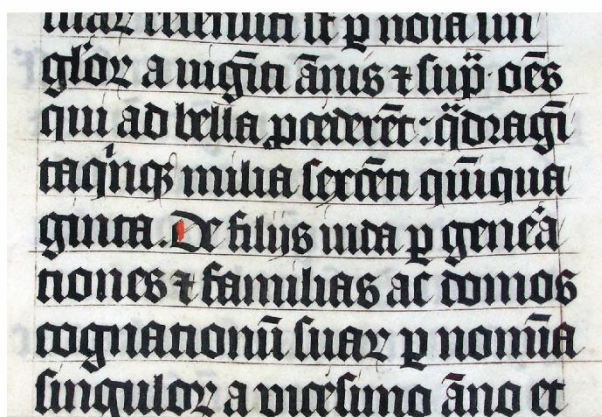 suar recensiti st̄ p̲ noīa sin
gl'oꝝ a uigīti ānis ⁊ sup̄ oēs
qui ad bella ꝓcederēt: q̄dragī
taqⁱnqꝫ milia sexcēti qīiqua
ginta. De filijs iuda ꝑ geneᵃ
tiones ⁊ familias ac domos
cognationū suaꝝ ꝑ nomīa
singuloꝝ a vicesimo āno et